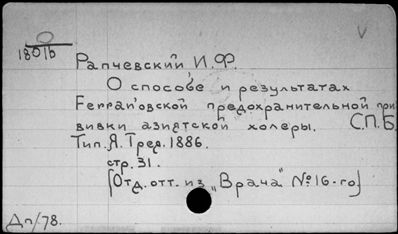 0
1801b
V
Рапчевский И.Ф.
О способе и результатах
Ferran'овской предохранительной при
вивки азиятской холеры. С.П.Б.
Тип. Я. Трея. 1886.
стр. 31.
[Отд. отт. из „Врача" № 16-го]
Дп/78.